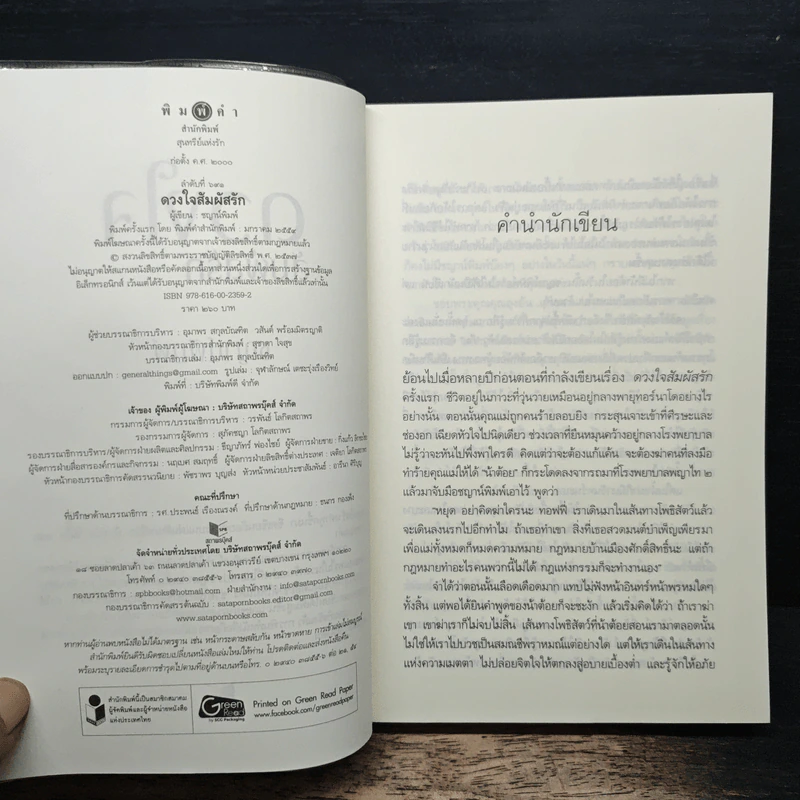 พิมพ์คำ
สำนักพิมพ์
สุนทรีย์แห่งรัก
ก่อตั้ง ค.ศ. ๒๐๐๐
ลำดับที่ ๖๙๑
ดวงใจสัมผัสรัก
ผู้เขียน : ชญาน์พิมพ์
พิมพ์ครั้งแรก โดย พิมพ์คำสำนักพิมพ์ : มกราคม ๒๕๕๙
พิมพ์โฆษณาครั้งนี้ได้รับอนุญาตจากเจ้าของลิขสิทธิ์ตามกฎหมายแล้ว
© สงวนลิขสิทธิ์ตามพระราชบัญญัติลิขสิทธิ์ พ.ศ. ๒๕๓๗
ไม่อนุญาตให้สแกนหนังสือหรือคัดลอกเนื้อหาส่วนหนึ่งส่วนใดเพื่อการสร้างฐานข้อมูล
อิเล็กทรอนิกส์ เว้นแต่ได้รับอนุญาตจากสำนักพิมพ์และเจ้าของลิขสิทธิ์แล้วเท่านั้น
ISBN 978-616-00-2359-2
ราคา ๒๖๐ บาท
ผู้ช่วยบรรณาธิการบริหาร : อุมาพร สกุลบัณฑิต วสันต์ พร้อมมิตรญาติ
หัวหน้ากองบรรณาธิการสำนักพิมพ์ : สุชาดา ใจสุข
บรรณาธิการเล่ม : อุมาพร สกุลบัณฑิต
ออกแบบปก : generalthings@gmail.com รูปเล่ม : จุฬาลักษณ์ เดชะรุ่งเรืองวิทย์
พิมพ์ที่ : บริษัทพิมพ์ดี จำกัด
เจ้าของ ผู้พิมพ์ผู้โฆษณา : บริษัทสถาพรบุ๊คส์ จำกัด
กรรมการผู้จัดการ/บรรณาธิการบริหาร : วรพันธ์ โลกิตสถาพร
รองกรรมการผู้จัดการ : สุภัคชญา โลกิตสถาพร
รองบรรณาธิการบริหาร/ผู้จัดการฝ่ายผลิตและศิลปกรรม : ธีญาภัทร์ ผ่องไชย์ ผู้จัดการฝ่ายขาย :
ผู้จัดการฝ่ายสื่อสารองค์กรและกิจกรรม : นฤมศ สมฤทธิ์ ผู้จัดการฝ่ายลิขสิทธิ์ต่างประเทศ :
หัวหน้ากองบรรณาธิการคัดสรรนวนิยาย : พัชราพร บุญส่ง หัวหน้าหน่วยประชาสัมพันธ์ :
คณะที่ปรึกษา
ที่ปรึกษาด้านบรรณาธิการ : รศ.ประพนธ์ เรืองณรงค์ ที่ปรึกษาด้านกฎหมาย :
SPB
สถาพรบุ๊คส์
จัดจำหน่ายทั่วประเทศโดย บริษัทสถาพรบุ๊คส์ จำกัด
๑๘ ซอยลาดปลาเค้า ๖๓ ถนนลาดปลาเค้า แขวงอนุสาวรีย์ เขตบางเขน กรุงเทพฯ ๑๐๒๒๐
โทรศัพท์ ๐ ๒๙๔๐ ๓๘๕๕-๖ โทรสาร ๐ ๒๙๔๐ ๓๙๗๐
กองบรรณาธิการ : spbbooks@hotmail.com ฝ่ายสำนักงาน : info@satapornbooks.com
กองบรรณาธิการคัดสรรต้นฉบับ : satapornbooks.editor@gmail.com
www.satapornbooks.com
หากท่านผู้อ่านพบหนังสือไม่ได้มาตรฐาน เช่น หน้ากระดาษสลับกัน หน้าขาดหาย การเข้าเล่มไม่สมบูรณ์
สำนักพิมพ์ยินดีรับผิดชอบเปลี่ยนหนังสือเล่มใหม่ให้ท่าน โปรดติดต่อและส่งหนังสือคืน
พร้อมระบุรายละเอียดการชำรุดไปตามที่อยู่ด้านบนหรือโทร. ๐ ๒๙๔๐ ๓๘๕๕-๖ ต่อ
สำนักพิมพ์นี้เป็นสมาชิกสมาคม
ผู้จัดพิมพ์และผู้จำหน่ายหนังสือ
แห่งประเทศไทย
Green Read
by SCG Packaging
Printed on Green Read Paper
www.facebook.com/greenreadpaper
คำนำนักเขียน
ย้อนไปเมื่อหลายปีก่อนตอนที่กำลังเขียนเรื่อง ดวงใจสัมผัสรัก
ครั้งแรก ชีวิตอยู่ในภาวะที่วุ่นวายเหมือนอยู่กลางพายุทอร์นาโดอย่างไร
อย่างนั้น ตอนนั้นคุณแม่ถูกคนร้ายลอบยิง กระสุนเจาะเข้าที่ศีรษะและ
ช่องอก เฉียดหัวใจไปนิดเดียว ช่วงเวลาที่ยืนหมุนคว้างอยู่กลางโรงพยาบาล
ไม่รู้ว่าจะหันไปพึ่งพาใครดี คิดแต่ว่าจะต้องแก้แค้น จะต้องฆ่าคนที่ลงมือ
ทำร้ายคุณแม่ให้ได้ "น้าต้อย" ก็กระโดดลงจากรถมาที่โรงพยาบาลพญาไท ๒
แล้วมาจับมือชญาน์พิมพ์เอาไว้ พูดว่า
"หยุด อย่าคิดฆ่าใครนะ ทอฟฟี่ เราเดินมาในเส้นทางโพธิสัตว์แล้ว
จะเดินลงนรกไปอีกทำไม ถ้าเธอทำเขา สิ่งที่เธอสวดมนต์บำเพ็ญเพียรมา
เพื่อแม่ทั้งหมดก็หมดความหมาย กฎหมายบ้านเมืองศักดิ์สิทธิ์นะ แต่ถ้า
กฎหมายทำอะไรคนพวกนี้ไม่ได้ กฎแห่งกรรมก็จะทำงานเอง"
จำได้ว่าตอนนั้นเลือดเดือดมาก แทบไม่ฟังหน้าอินทร์หน้าพรหมใดๆ
ทั้งสิ้น แต่พอได้ยินคำพูดของน้าต้อยก็จะชะงัก แล้วเริ่มคิดได้ว่า ถ้าเราฆ่า
เขา เขาฆ่าเราก็ไม่จบไม่สิ้น เส้นทางโพธิสัตว์ที่น้าต้อยสอนเรามาตลอดนั้น
ไม่ใช่ให้เราไปบวชเป็นสมณชีพราหมณ์แต่อย่างใด แต่ให้เราเดินในเส้นทาง
แห่งความเมตตา ไม่ปล่อยจิตใจให้ตกลงสู่อบายเบื้องต่ำ และรู้จักให้อภัย